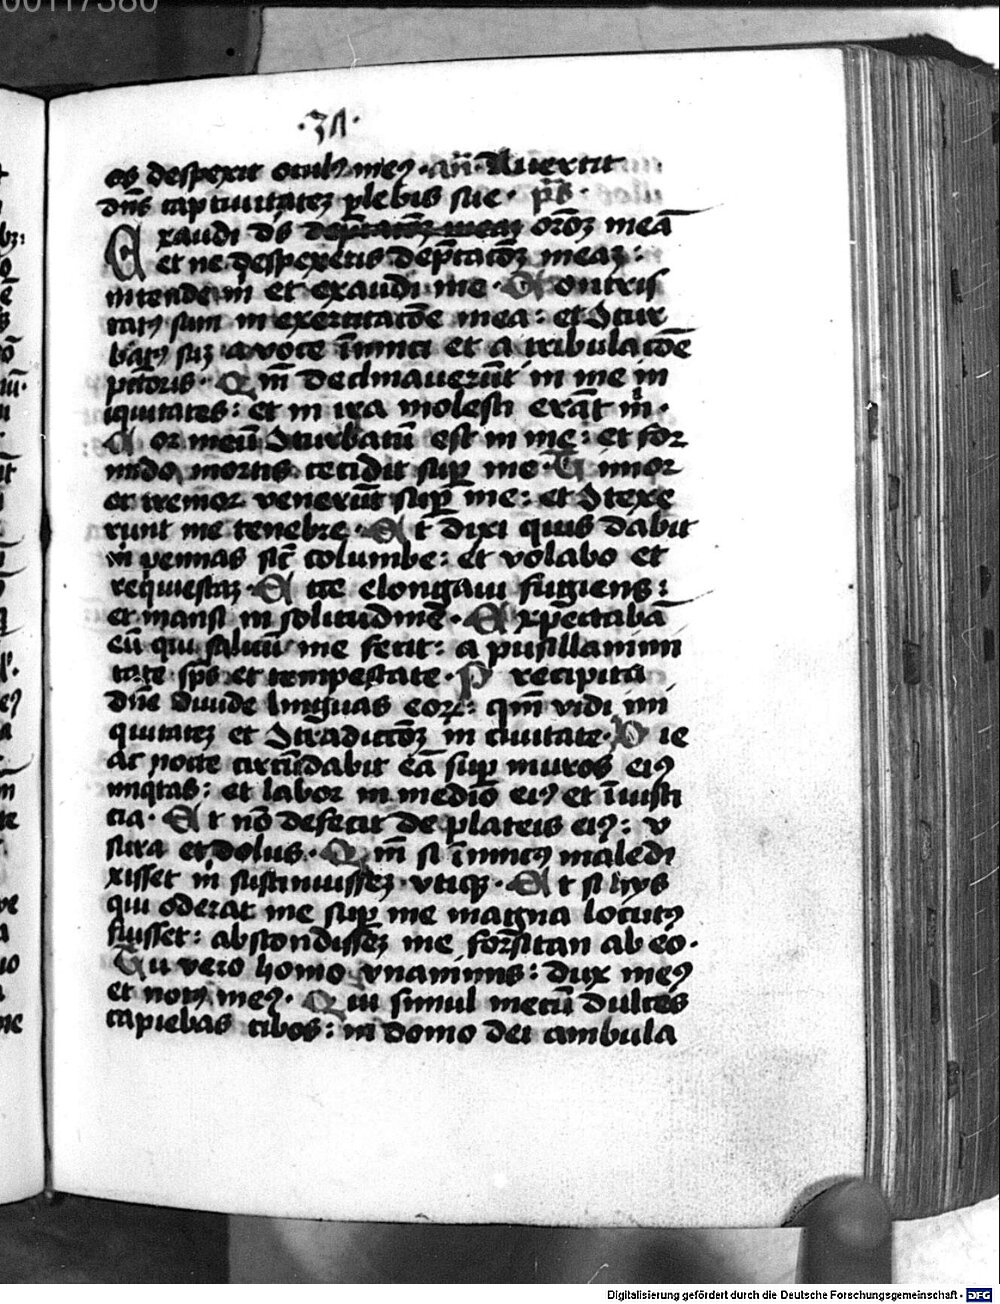 00117380
·31·
os despexit ocul9 me9 · añ · Auertit
dn̄s captiuitatez plebis sue · ps̄ ·
Exaudi ds dep̄catōz meaz orōz meā
et ne despexeris dep̄catōz meaz :
intende m̄ et exaudi me · Contris
tat9 sum in exercitatōe mea : et 9tur
bat9 suz a voce īimici et a tribulatōe
pctōris · Qm̄ declinauerūt in me in
iquitates : et in ira molesti erāt m̄ ·
Cor meū 9turbatū est in me : et for
mido mortis cecidit sup me · Timor
et tremor venerūt sup me : et 9texe
runt me tenebre · Et dixi quis dabit
m̄ pennas sic̄ columbe : et volabo et
requiescaz · Ecce elongaui fugiens :
et mansi in solitudine · Expectabā
eū qui saluū me fecit : a pusillanimi
tate sps̄ et tempestate · Precipita
dn̄e diuide linguas eorz : qm̄ vidi ini
quitatez et 9tradictōz in ciuitate · Die
ac nocte circūdabit eā sup muros ei9
iniqtas : et labor in medio ei9 et īiusti
cia · Et nō defecit de plateis ei9 : v
sura et dolus · Qm̄ si īimic9 maledi
xisset m̄ sustinuissez vtiq3 · Et si hys
qui oderat me sup me magna locut9
fuisset : abscondissez me forsitan ab eo ·
Tu vero homo vnanimis : dux me9
et not9 me9 · Qui simul mecū dulces
capiebas cibos : in domo dei ambula
Digitalisierung gefördert durch die Deutsche Forschungsgemeinschaft · DFG